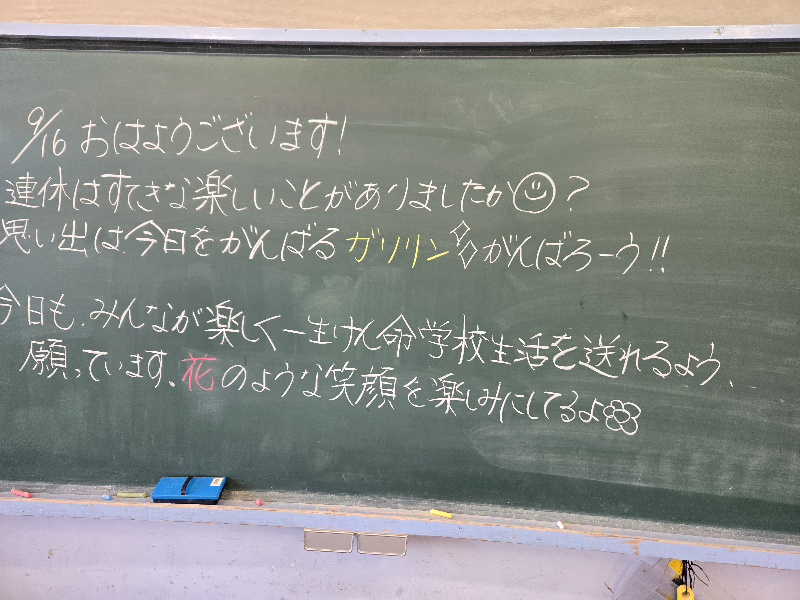 9/16 おはようございます!
連休はすてきな楽しいことがありましたか?
思い出は今日をがんばるガソリンがんばろーう!!
今日も、みんなが楽しく一生けん命学校生活を送れるよう、
願っています。花のような笑顔を楽しみにしてるよ